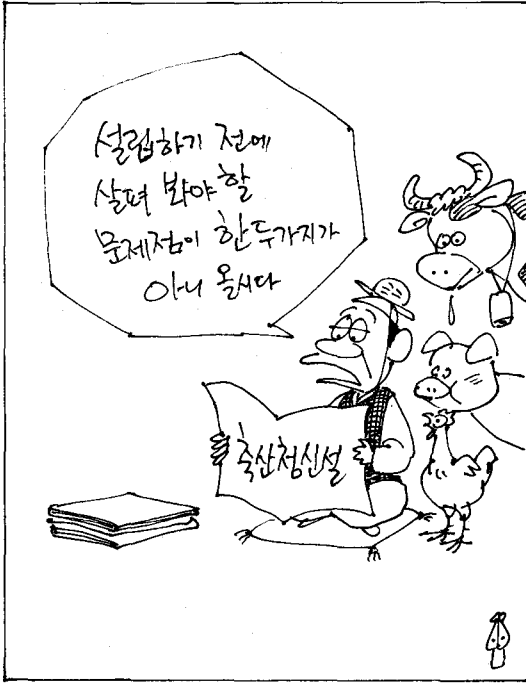 설립하기 전에
살펴 봐야 할
문제점이 한두가지가
아니 올시다
축산청신설